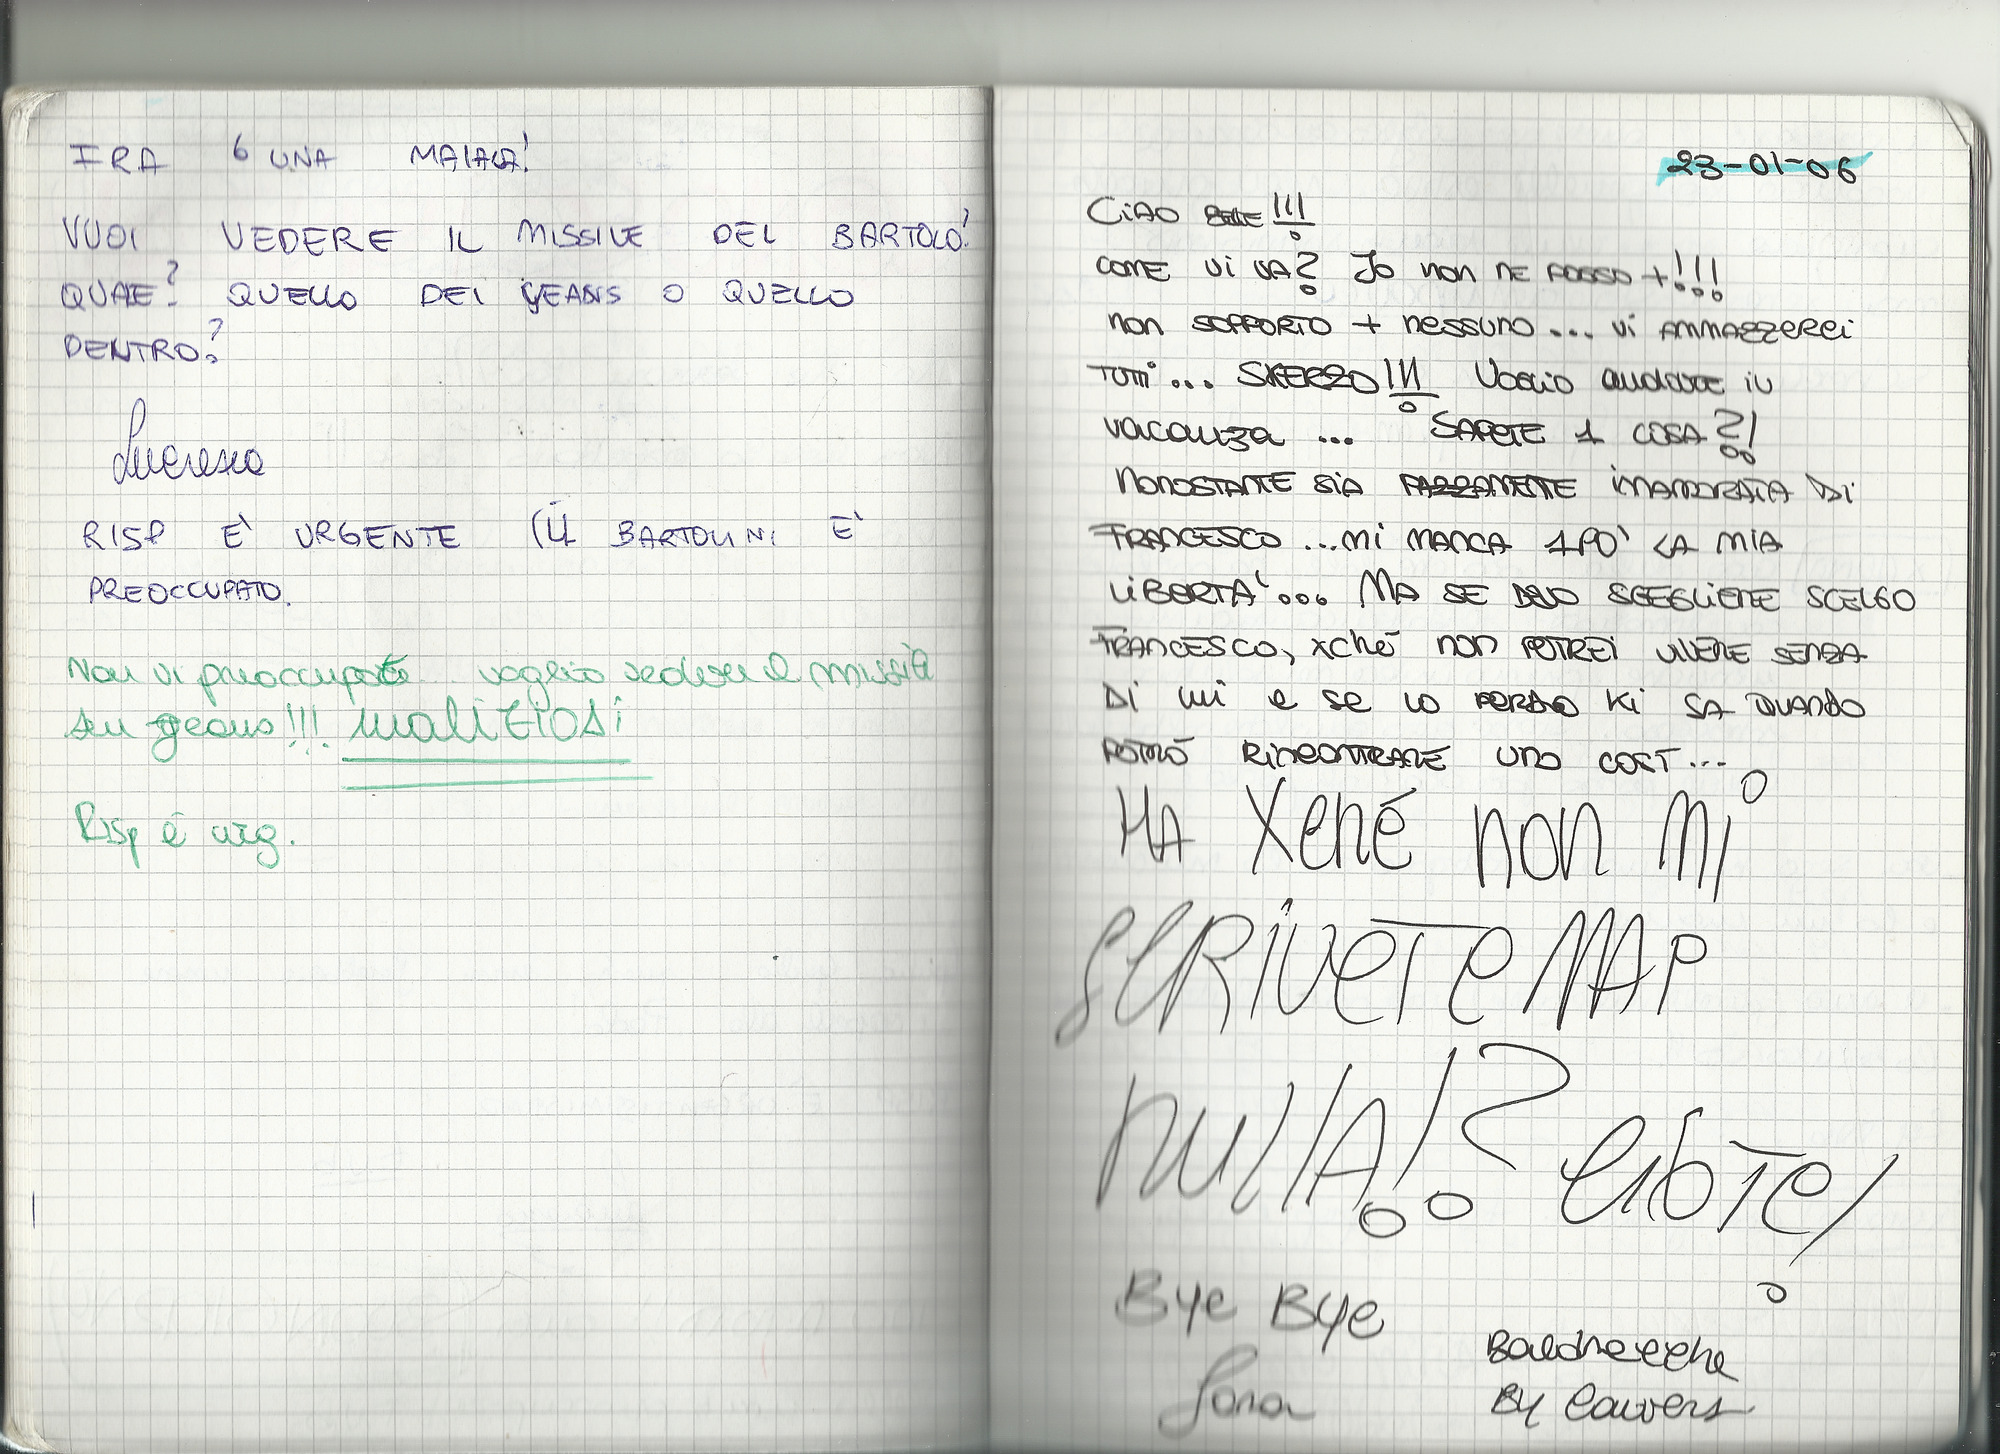 FRA 6 UNA MAIALA!
VUOI VEDERE IL MISSILE DEL BARTOLO!
QUALE? QUELLO DEI YEANS O QUELLO
DENTRO?
Lucrezia
RISP E' URGENTE (IL BARTOLINI E'
PREOCCUPATO.
Non vi preoccupate... voglio vedere il missile
dei jeans!!! maliziosi
Risp è urg.
23-01-06
CIAO BELLE!!!
COME VI VA? Io non NE POSSO +!!!
non SOPPORTO + nessuno... vi AMMAZZEREI
TUTTI... SKERZO!!! VOGLIO andare in
vacanza... SAPETE 1 COSA?!
NONOSTANTE SIA PAZZAMENTE INNAMORATA DI
FRANCESCO...MI MANCA 1 PO' LA MIA
LIBERTA'... MA SE DEVO SCEGLIERE SCELGO
FRANCESCO, xché non POTREI VIVERE SENZA
DI lui e se lo PERDO KI SA QUANDO
POTRÒ RINCONTRARE UNO COSÌ...
MA Xché non mi
SCRIVETE MAP
nullA!?
Bye Bye
Sara
BY